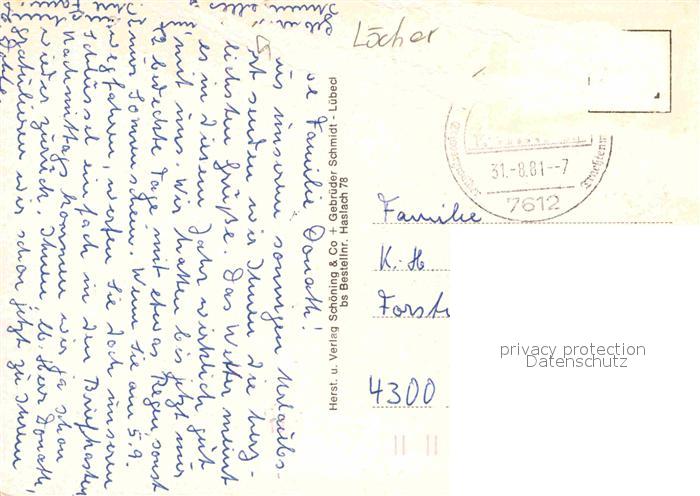 Familie Donath!
Aus unserem sonnigen Urlaubs-
ort senden wir Ihnen die herz-
lichsten Grüße. Das Wetter meint
es in diesem Jahr wirklich gut
mit uns. Wir hatten bis jetzt nur
bedeckte Tage mit etwas Regen, sonst
nur Sonnenschein. Wenn Sie am 5.9.
wegfahren, werfen Sie doch unseren
Schlüssel einfach in den Briefkasten
Nachmittags kommen wir ja schon
wieder zurück. Ihnen, lb. Herr Donath,
gratulieren wir schon jetzt zu Ihrem
Löcher
Herst. u. Verlag Schöning & Co + Gebrüder Schmidt - Lübeck
bs Bestellnr. Haslach 78
31.-8.81--7
7612
Familie
K.-H
Forst
4300
privacy protection
Datenschutz